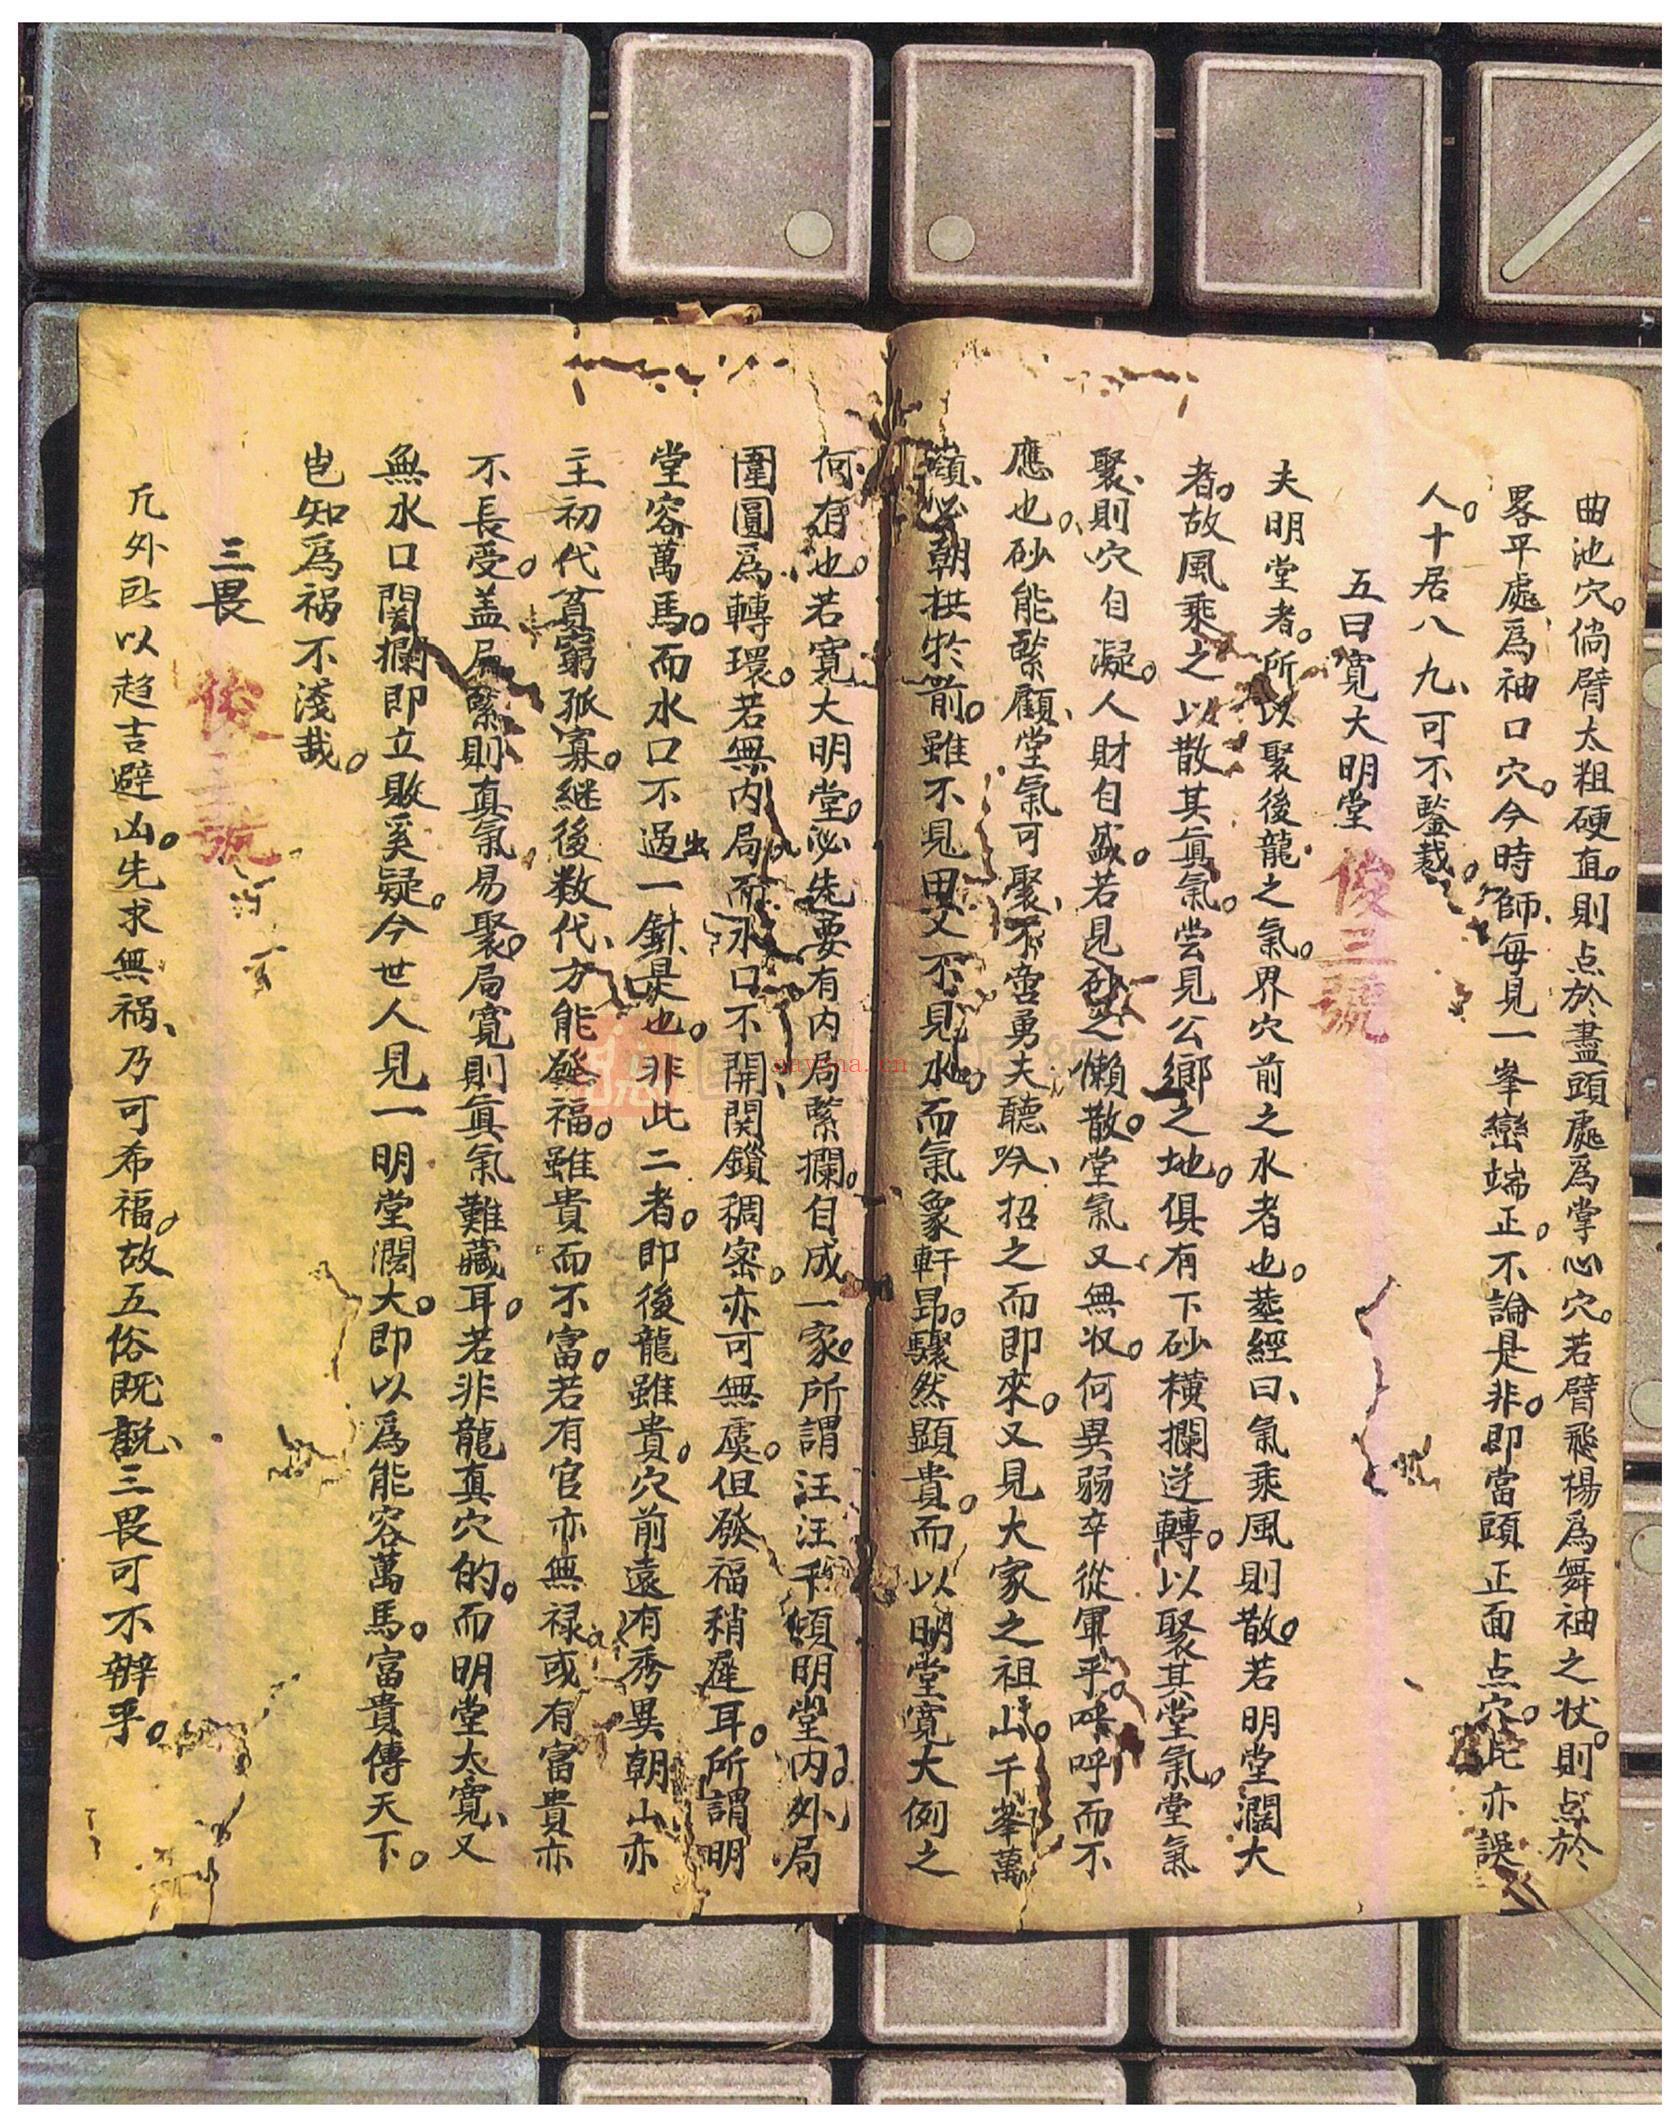 曲池穴。倘臂太粗硬直。則点於盡頭處爲掌心穴。若臂飛楊爲舞袖之状。則点於
畧平處、爲袖口穴。今時師、每見一峯巒端正。不論是非。即當頭正面点穴。此亦誤
人。十居八九、可不鑒裁。
五曰寬大明堂 俊三號
夫明堂者。所以聚後龍之氣。界穴前之水者也。塟經曰、氣乘風則散。若明堂濶大
者。故風乘之以散其眞氣。尝見公鄉之地。俱有下砂横攔逆轉。以聚其堂氣。堂氣
聚、則穴自凝。人財自盛。若見砂之懒散。堂氣又無收。何異弱卒從軍乎。呼呼而不
應也。砂能緊顧、堂氣可聚、不啻勇夫聽吟、招之而即來。又見大家之祖山。千峯萬
嶺、必朝拱扵前。雖不見田又不見水、而氣象軒昻。驟然顕貴。而以明堂寛大例之
何有也。若寛大明堂。必先要有内局緊攔。自成一家。所謂汪汪千傾明堂、内外局
圍圓爲轉環。若無内局而水口不開、関鎖稠密。亦可無虞。但發福稍遲耳。所謂明
堂容萬馬。而水口不過一針是也。非此二者。即後龍雖貴。穴前遠有秀異朝山亦
主初代貧窮孤寡。継後数代、方能發福。雖貴而不富。若有官亦無禄。或有富貴亦
不長受。盖局緊則真氣易聚。局寛則眞氣難藏耳。若非龍真穴的。而明堂太寛、又
無水口関攔即立敗奚疑。今世人見一明堂濶大。即以爲能容萬馬。富貴傳天下。
岂知爲祸不淺哉。
三畏 俊三號
凢外 以趋吉避凶。先求無祸、乃可希福。故五俗既説、三畏可不辦乎。
aayana.cn